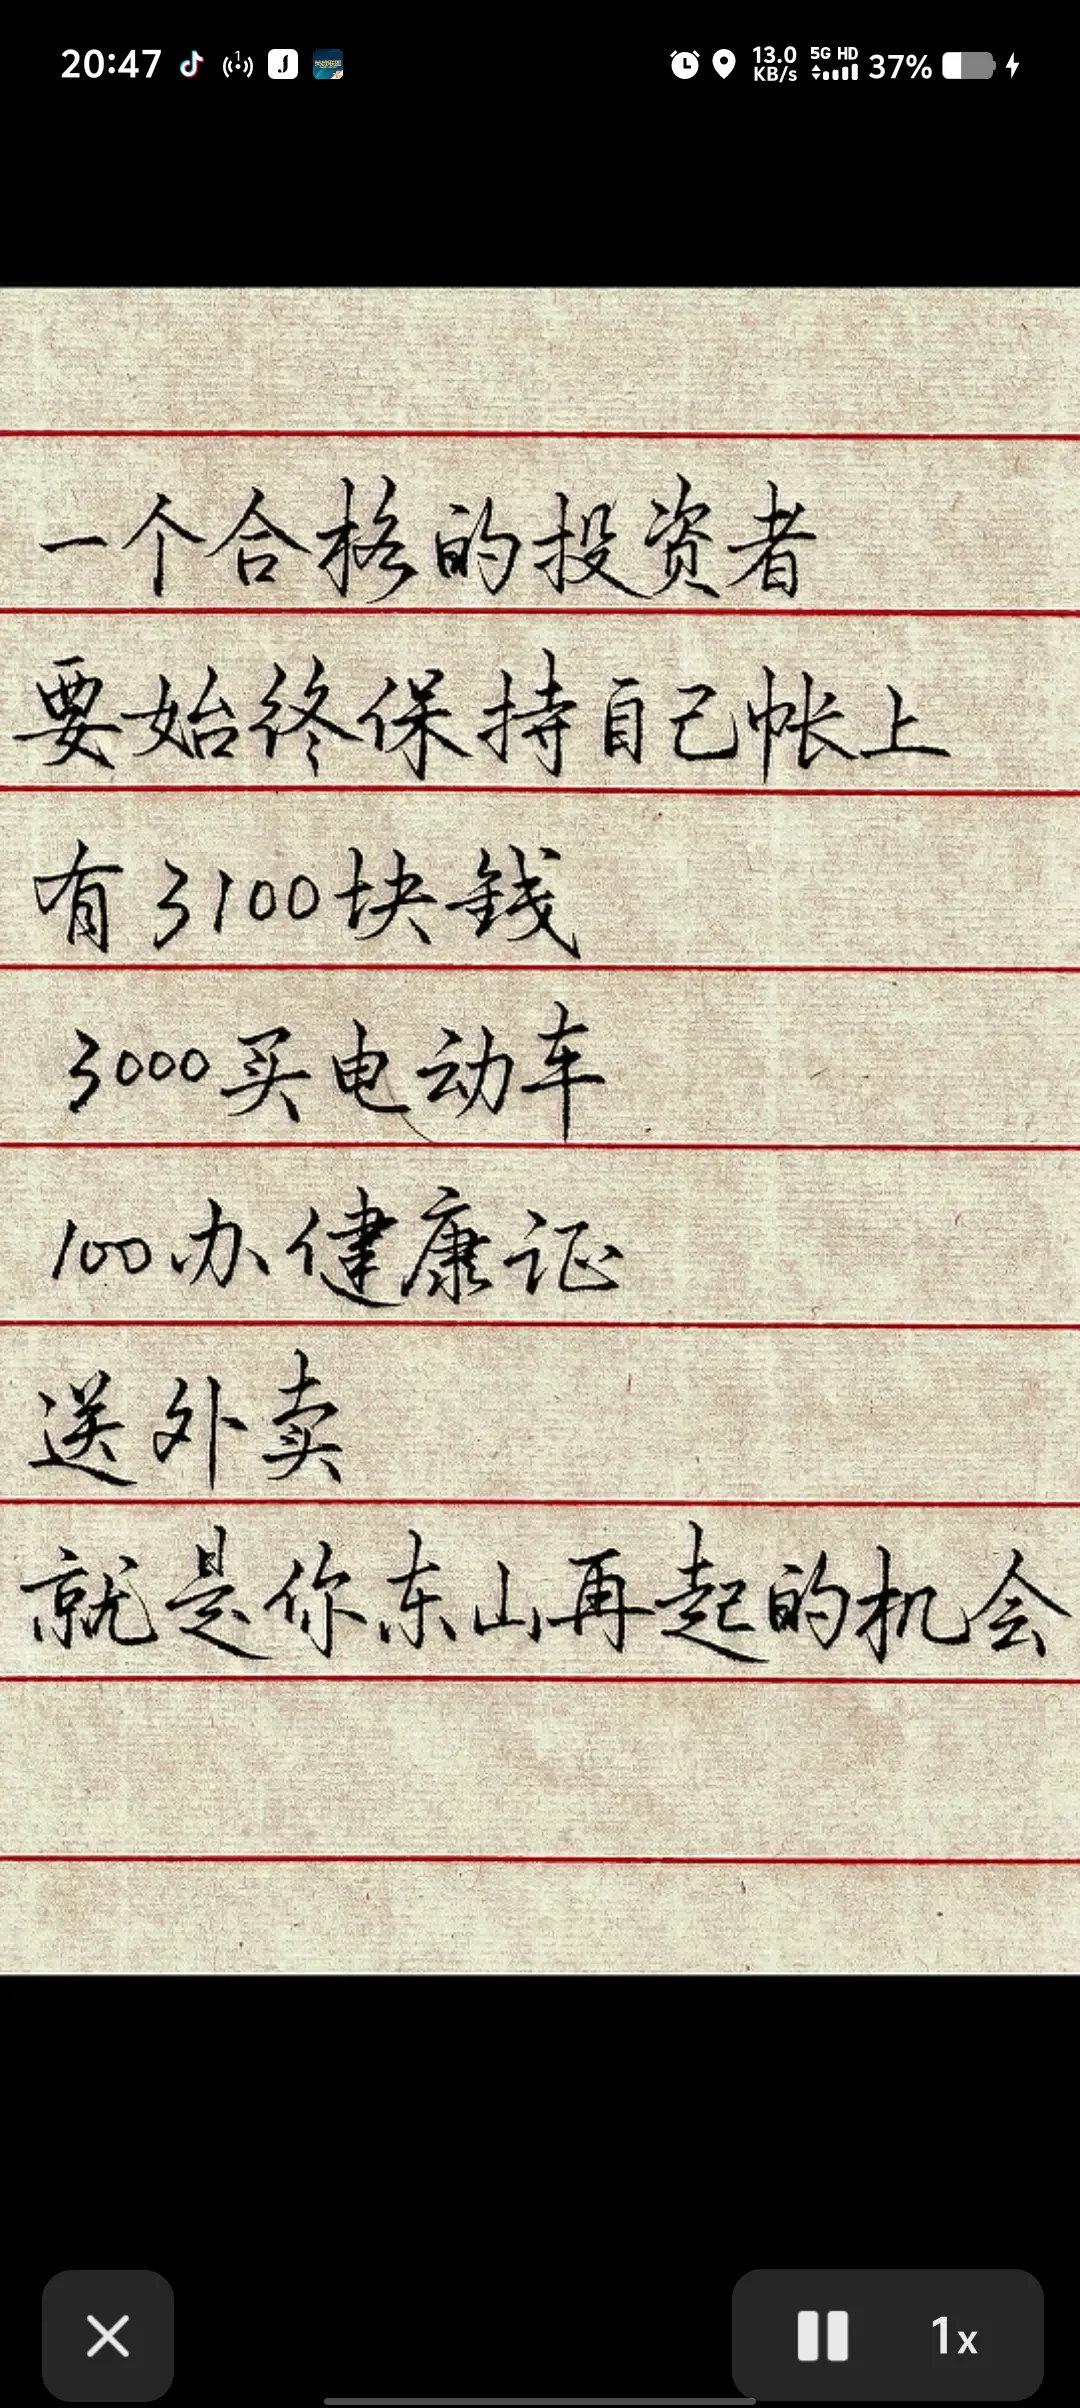 20:47
13.0 KB/s 5G HD 37%
一个合格的投资者
要始终保持自己帐上
有3100块钱
3000买电动车
100办健康证
送外卖
就是你东山再起的机会
1x